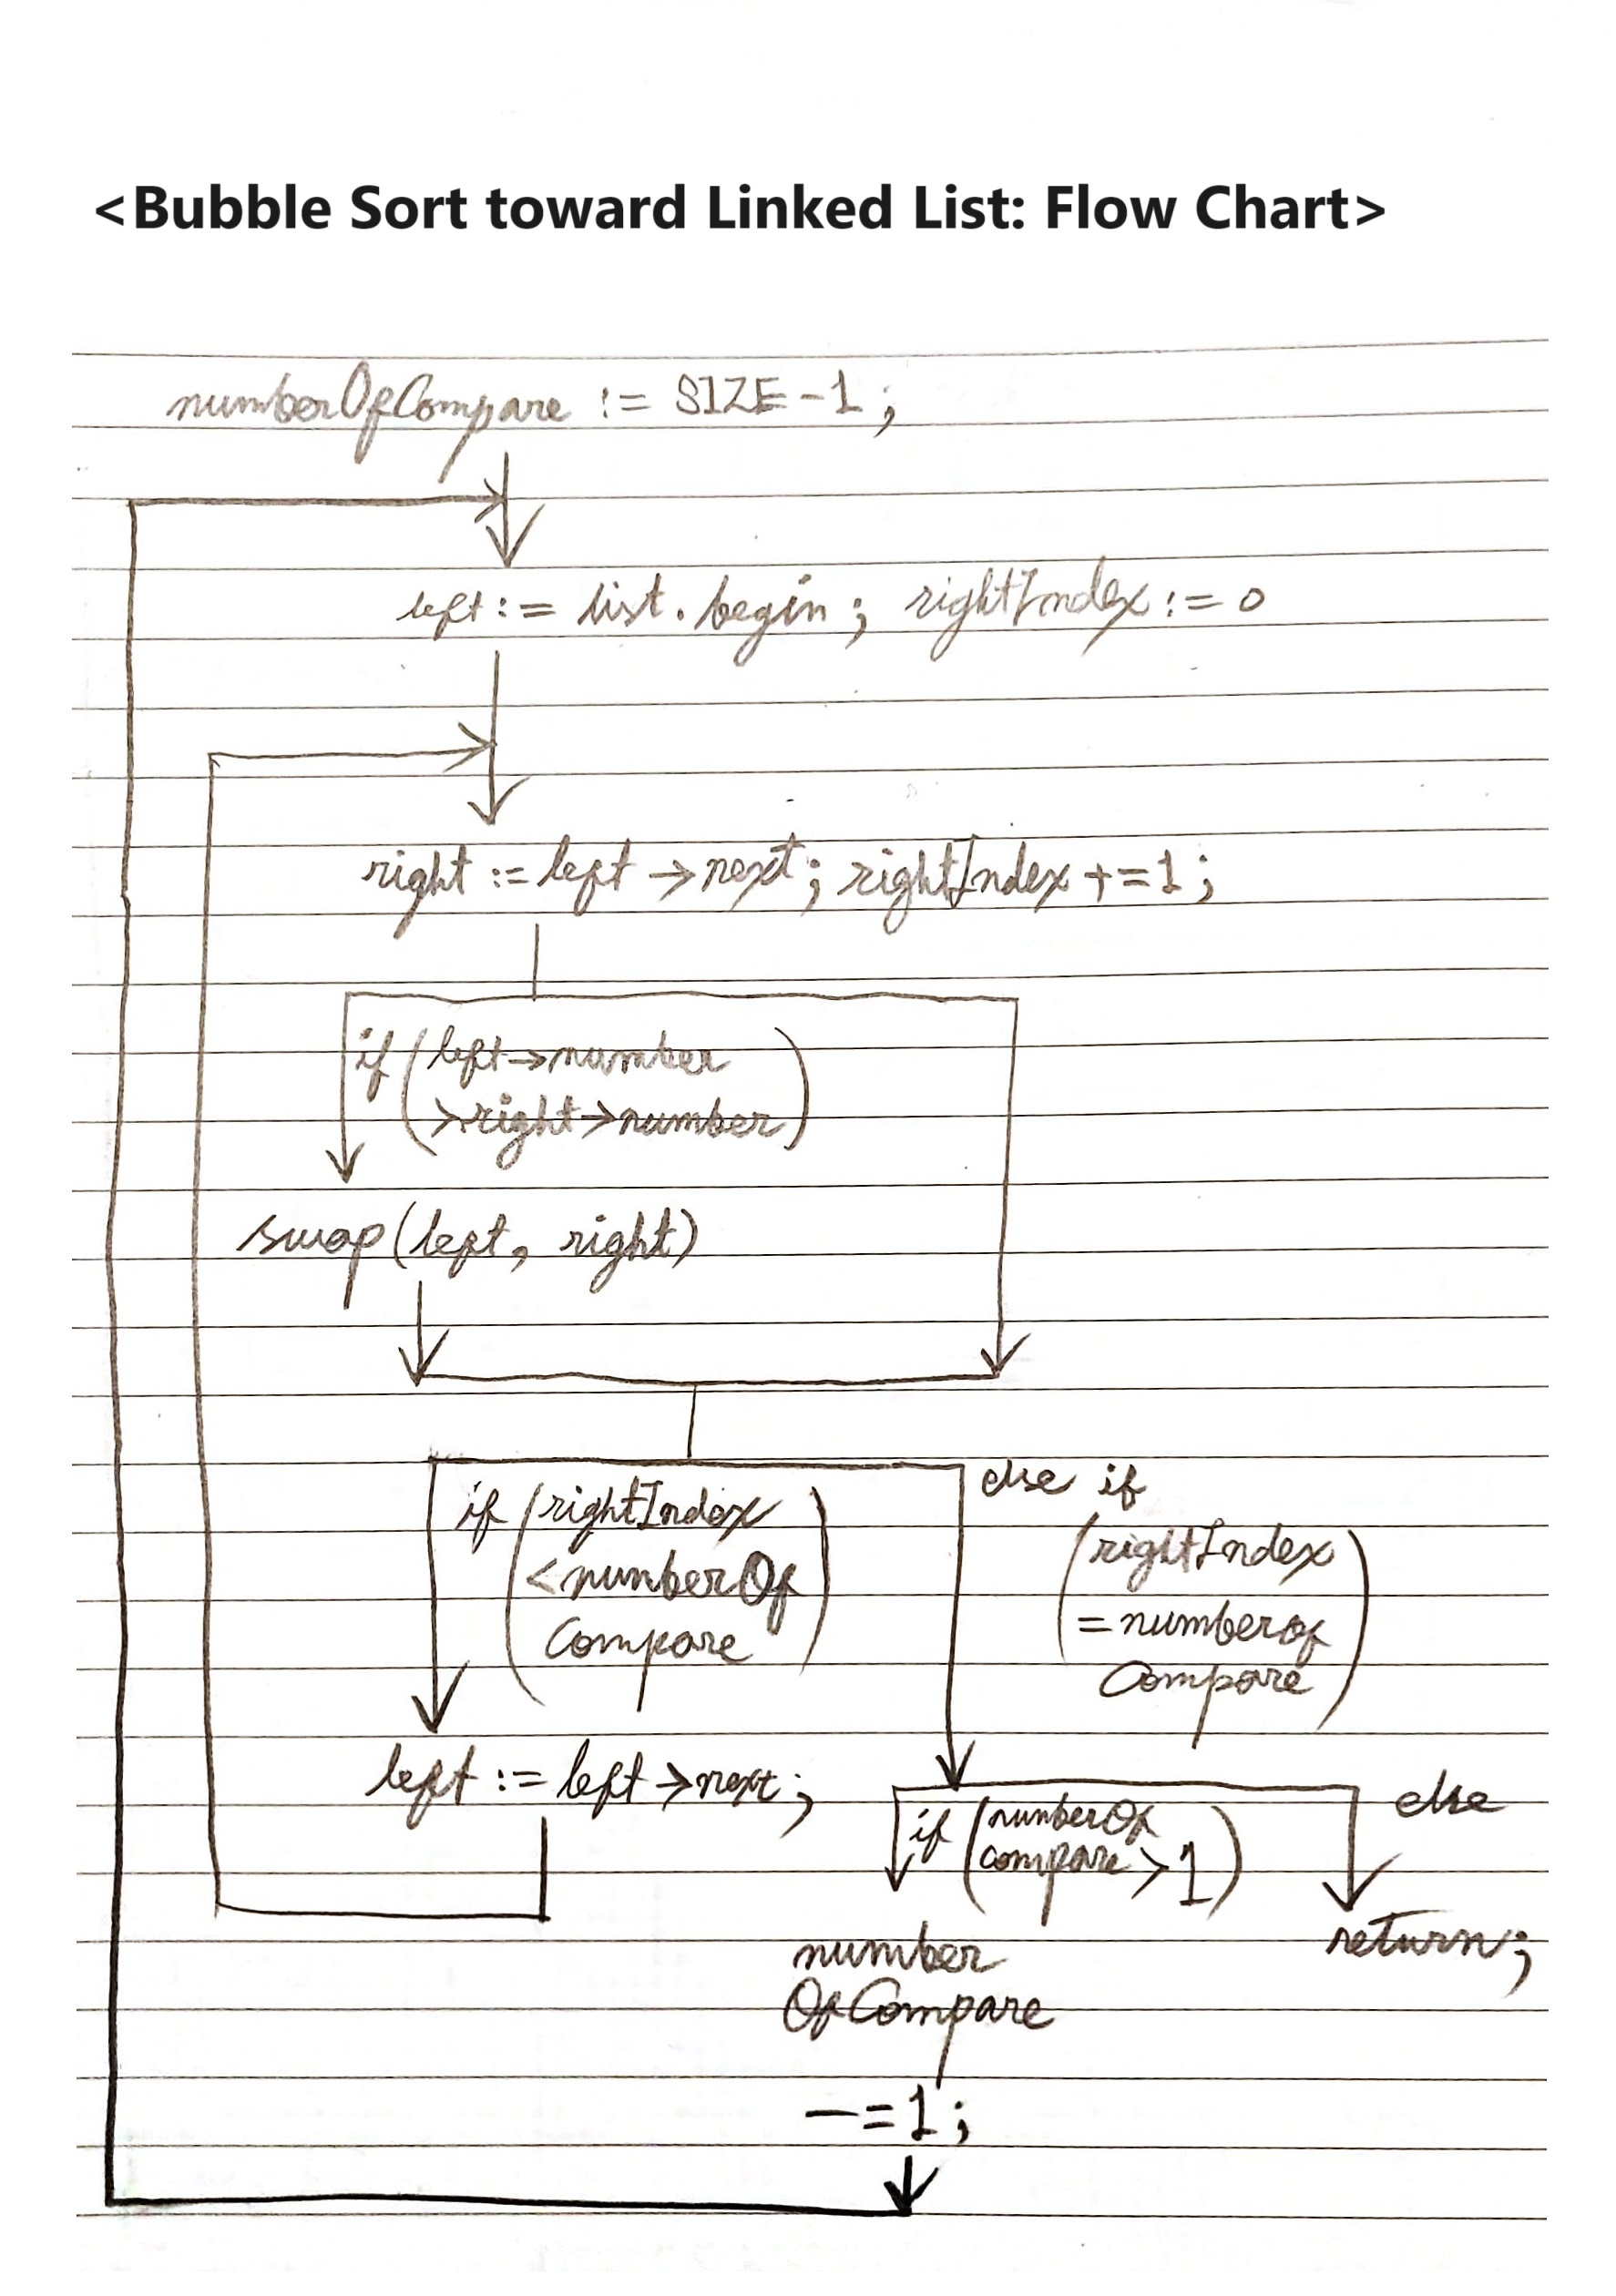 <Bubble Sort toward Linked List: Flow Chart>
numberOfCompare := SIZE-1;
left := list.begin; rightIndex := 0
right := left->next; rightIndex +=1;
if (left->number
>right->number)
swap(left, right)
if (rightIndex
<numberOf
Compare)
else if
(rightIndex
=numberOf
Compare)
left := left->next;
if (numberOf
compare>1)
else
return;
number
OfCompare
-=1;